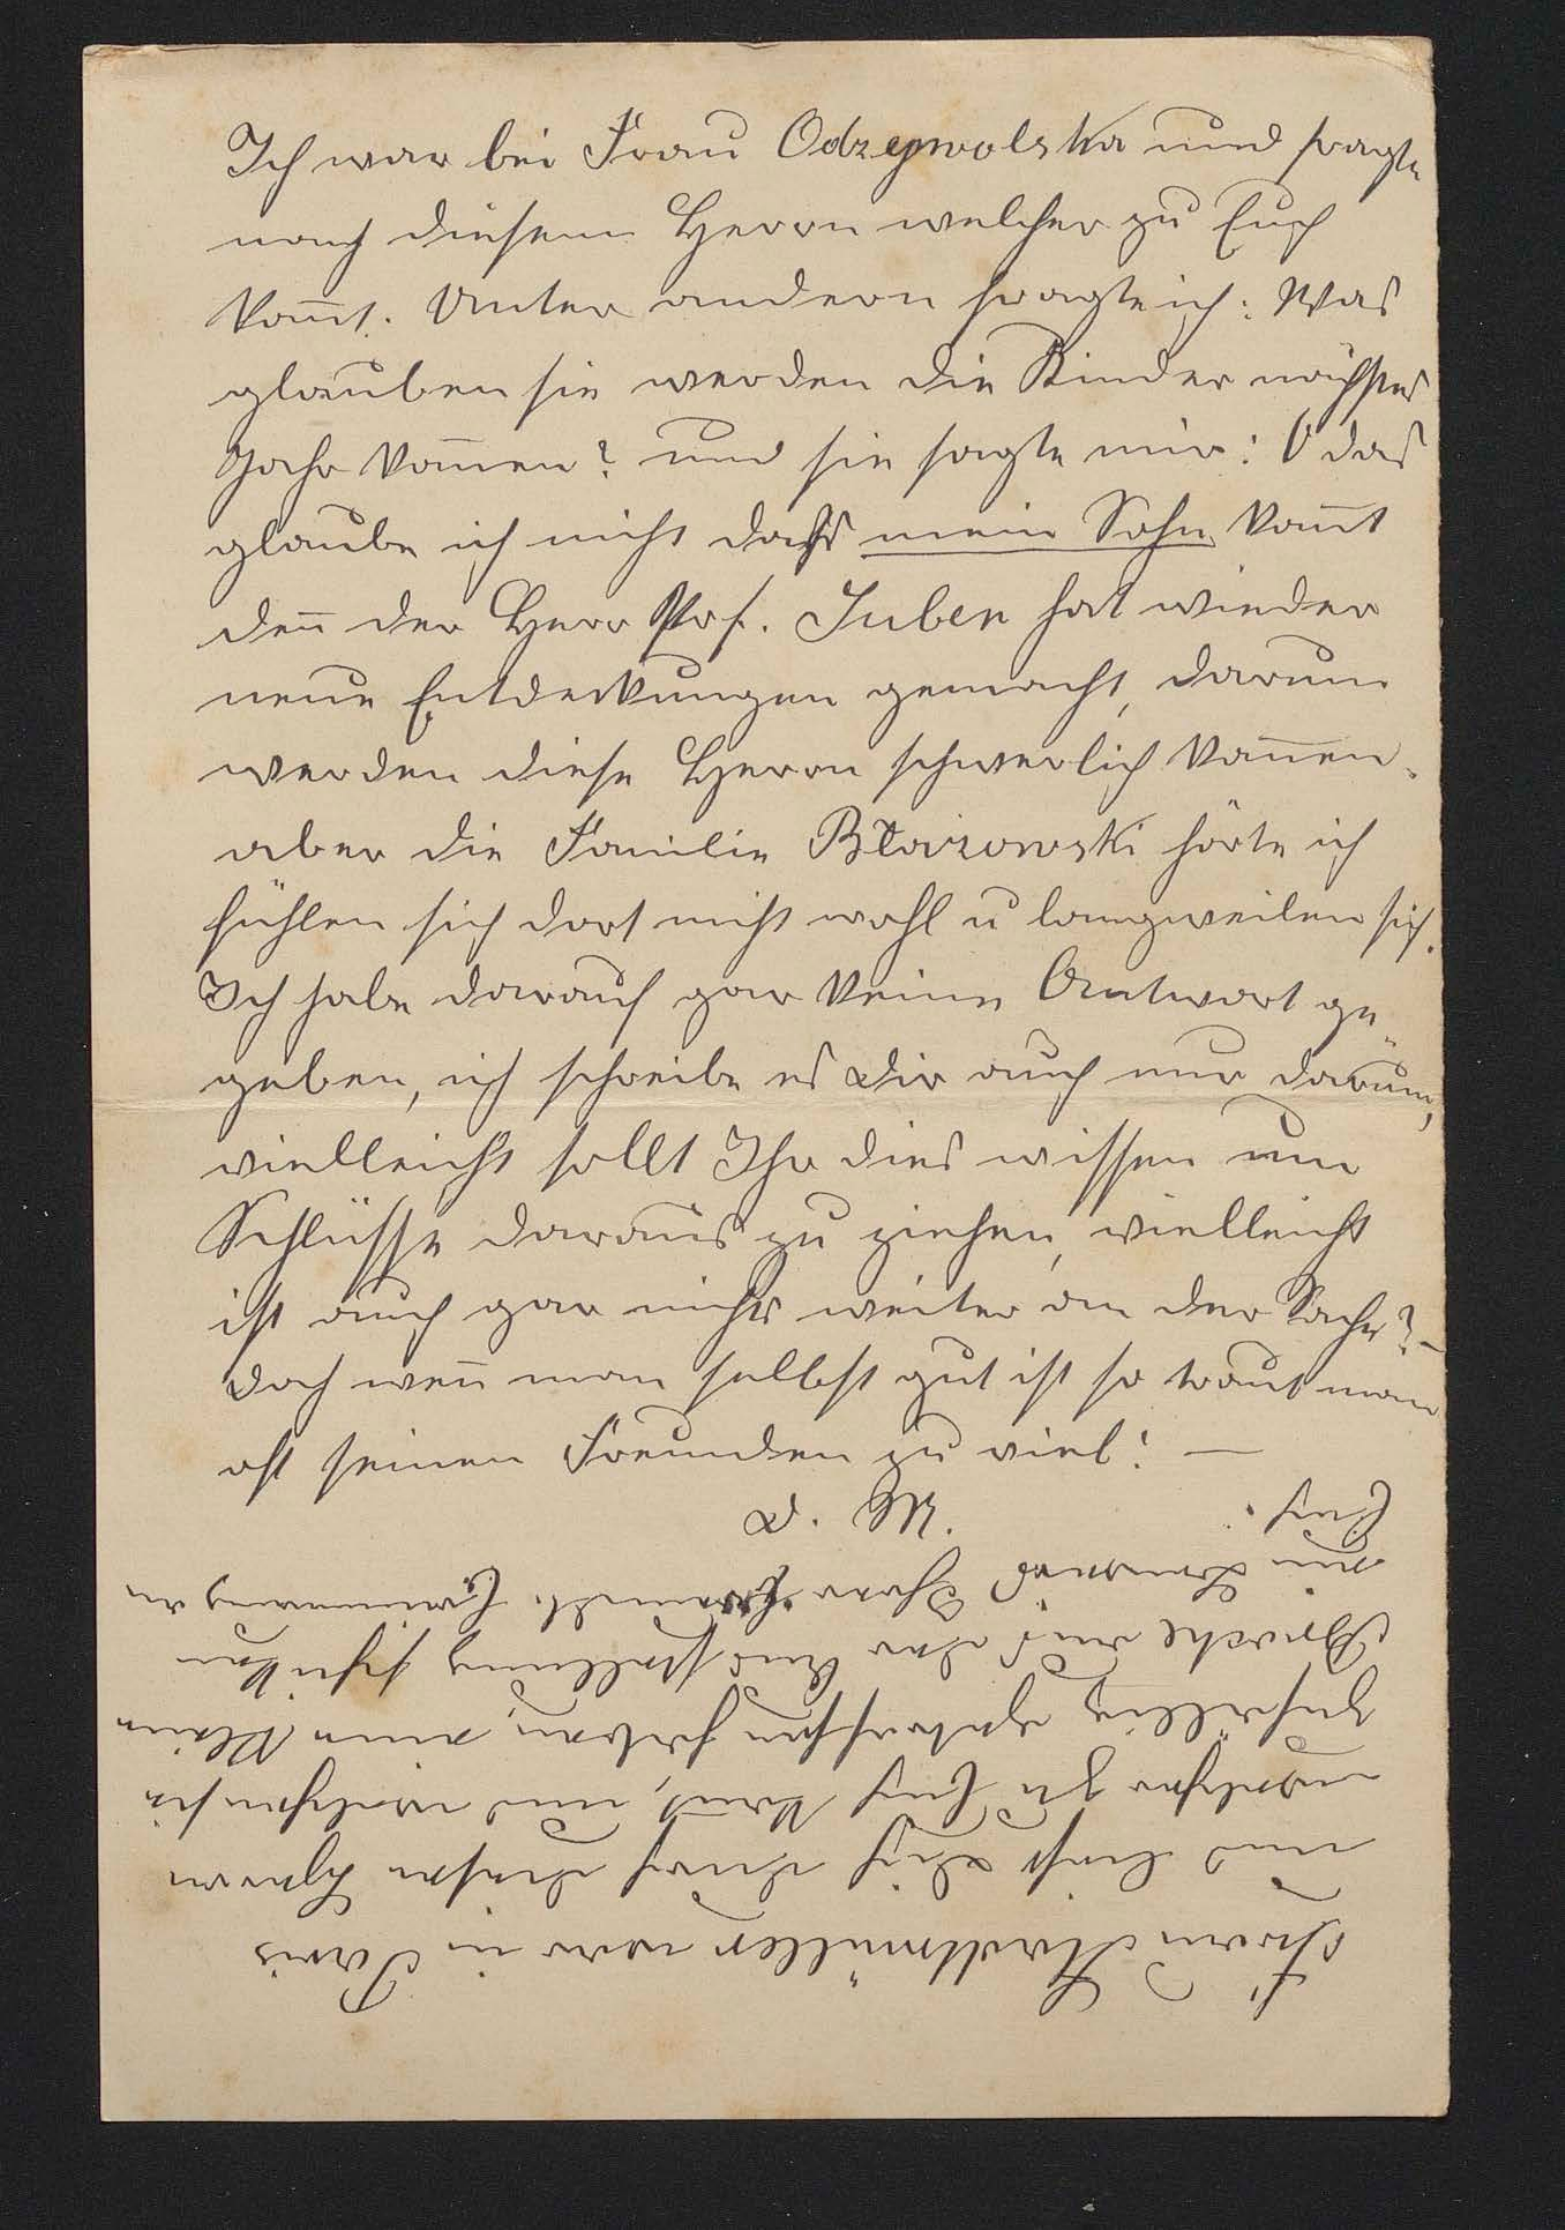 Ich war bei Frau Odzeywolska und fragte
nach diesem Herrn welcher zu Euch
kom̄t. Unter andern fragte ich: Was
glauben sie werden die Kinder nächstes
Jahr kom̄en? und sie sagte mir: O das
glaube ich nicht dass mein Sohn kom̄t
den̄ der Herr Prof. Juben hat wieder
neue Entdeckungen gemacht, darum
werden diese Herrn schwerlich kom̄en.
aber die Familie Błaizowski hörte ich
fühlen sich dort nicht wohl u langweilen sich.
Ich habe darauf gar keine Antwort ge„
geben, ich schreibe es Dir auch nur darum,
vielleicht sollt Ihr dies wissen um
Schlüsse daraus zu ziehen, vielleicht
ist auch gar nichts weiter an der Sache? –
doch wen̄ man selbst gut ist so traut man
oft seinen Freunden zu viel! —
D. M.
Frau Stadtmüller war in Paris
und liess Dich durch diesen Herrn
welcher zu Euch kom̄t, und welchen sie
zufällig getroffen haben, eine kleine
Broche aus der Ausstellung schicken
zum Beweis Ihrer freundl. Erinnerung an
Euch.